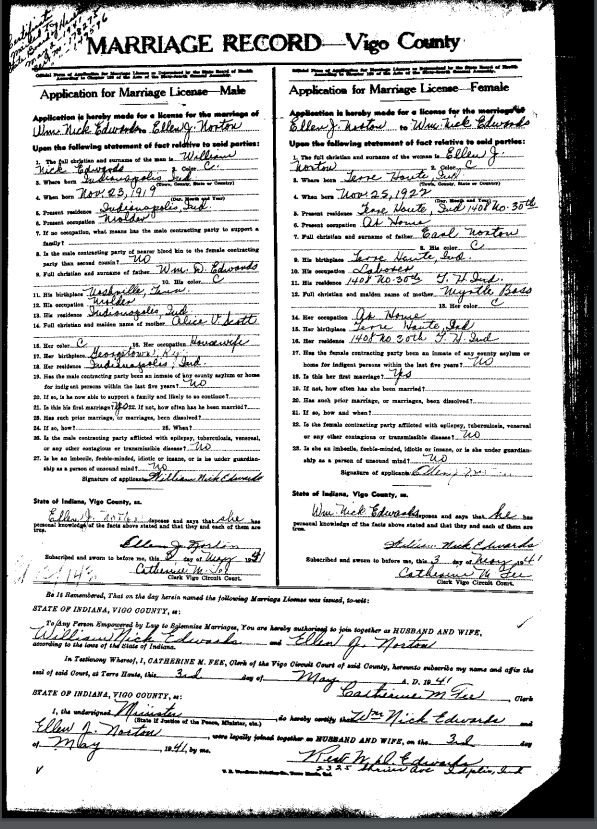 MARRIAGE RECORD—Vigo County
Official Form of Application for Marriage License as Determined by the State Board of Health
According to Chapter of the Acts of the General Assembly.
Application for Marriage License—Male
Application is hereby made for a license for the marriage of
Wm Nick Edwards to Ellen J. Norton
Upon the following statement of fact relative to said parties:
1. The full christian and surname of the man is William
Nick Edwards 2. Color C.
3. Where born Indianapolis Ind
(Town, County, State or Country)
4. When born Nov. 23, 1919
(Day, Month and Year)
5. Present residence Indianapolis, Ind
6. Present occupation Molder
7. If no occupation, what means has the male contracting party to support a
family?
8. Is the male contracting party nearer of blood kin to the female contracting
party than second cousin? No
9. Full christian and surname of father Wm. D. Edwards
10. His color C
11. His birthplace Nashville, Tenn.
12. His occupation Molder
13. His residence Indianapolis, Ind
14. Full christian and surname of mother Alice V. Scott
15. Her color C 16. Her occupation Housewife
17. Her birthplace Georgetown, Ky.
18. Her residence Indianapolis, Ind.
19. Has the male contracting party been an inmate of any county asylum or home
for indigent persons within the last five years? No
20. If so, is he now able to support a family and likely to continue?
21. Is this his first marriage? 22. If not, how often has he been married?
23. Has such prior marriage, or marriages, been dissolved?
24. If so, how? 25. When?
26. Is the male contracting party afflicted with epilepsy, tuberculosis, venereal,
or any other contagious or transmissible disease? No
27. Is he an imbecile, feeble-minded, idiotic or insane, or is he under guardian-
ship as a person of unsound mind? No
Signature of applicant William Nick Edwards
State of Indiana, Vigo County, ss.
Ellen J. Norton deposes and says that she has
personal knowledge of the facts above stated and that they and each of them are
true.
Ellen J. Norton
Subscribed and sworn to before me, this 3 day of May 1941
Catherine M. Fee
Clerk Vigo Circuit Court.
Official Form of Application for Marriage License as Determined by the State Board of Health
According to Chapter of the Acts of the General Assembly.
Application for Marriage License—Female
Application is hereby made for a license for the marriage of
Ellen J. Norton to Wm. Nick Edwards
Upon the following statement of fact relative to said parties:
1. The full christian and surname of the woman is Ellen J.
Norton 2. Color C
3. Where born Terre Haute Ind
(Town, County, State or Country)
4. When born Nov 25, 1922
(Day, Month and Year)
5. Present residence Terre Haute, Ind 1408 No. 30th
6. Present occupation At Home
7. Full christian and surname of father Earl Norton
8. His color C
9. His birthplace Terre Haute, Ind.
10. His occupation Laborer
11. His residence 1408 No. 30th T. H Ind.
12. Full christian and maiden name of mother Myrtle Bass
13. Her color C
14. Her occupation At Home
15. Her birthplace Terre Haute, Ind
16. Her residence 1408 No 30th T. H Ind
17. Has the female contracting party been an inmate of any county asylum or
home for indigent persons within the last five years? No
18. Is this her first marriage? Yes
19. If not, how often has she been married?
20. Has such prior marriage, or marriages, been dissolved?
21. If so, how and when?
22. Is the female contracting party afflicted with epilepsy, tuberculosis, venereal
or any other contagious or transmissible disease? No
23. Is she an imbecile, feeble-minded, idiotic or insane, or is she under guardian-
ship as a person of unsound mind? No
Signature of applicant Ellen J.
State of Indiana, Vigo County, ss.
Wm. Nick Edwards deposes and says that he has
personal knowledge of the facts above stated and that they and each of them are
true.
William Nick Edwards
Subscribed and sworn to before me, this 3 day of May 1941
Catherine M Fee
Clerk Vigo Circuit Court.
Be it Remembered, That on the day herein named the following Marriage License was issued, to-wit:
STATE OF INDIANA, VIGO COUNTY, ss:
To Any Person Empowered by Law to Solemnize Marriages, You are hereby authorized to join together as HUSBAND AND WIFE,
William Nick Edwards and Ellen J. Norton
according to the laws of the State of Indiana.
In Testimony Whereof, I, CATHERINE M. FEE, Clerk of the Vigo Circuit Court of said County, hereunto subscribe my name and affix the
seal of said Court, at Terre Haute, this 3rd day of May A. D. 1941
Catherine M Fee Clerk
STATE OF INDIANA, VIGO COUNTY, ss:
I, the undersigned Minister do hereby certify that Wm Nick Edwards and
(State if Justice of the Peace, Minister, etc.)
Ellen J. Norton were legally joined together as HUSBAND AND WIFE, on the 3rd day
of May, 1941, by me.
Rev. W. D. Edwards
2325 Shriver Ave Indpls, Ind